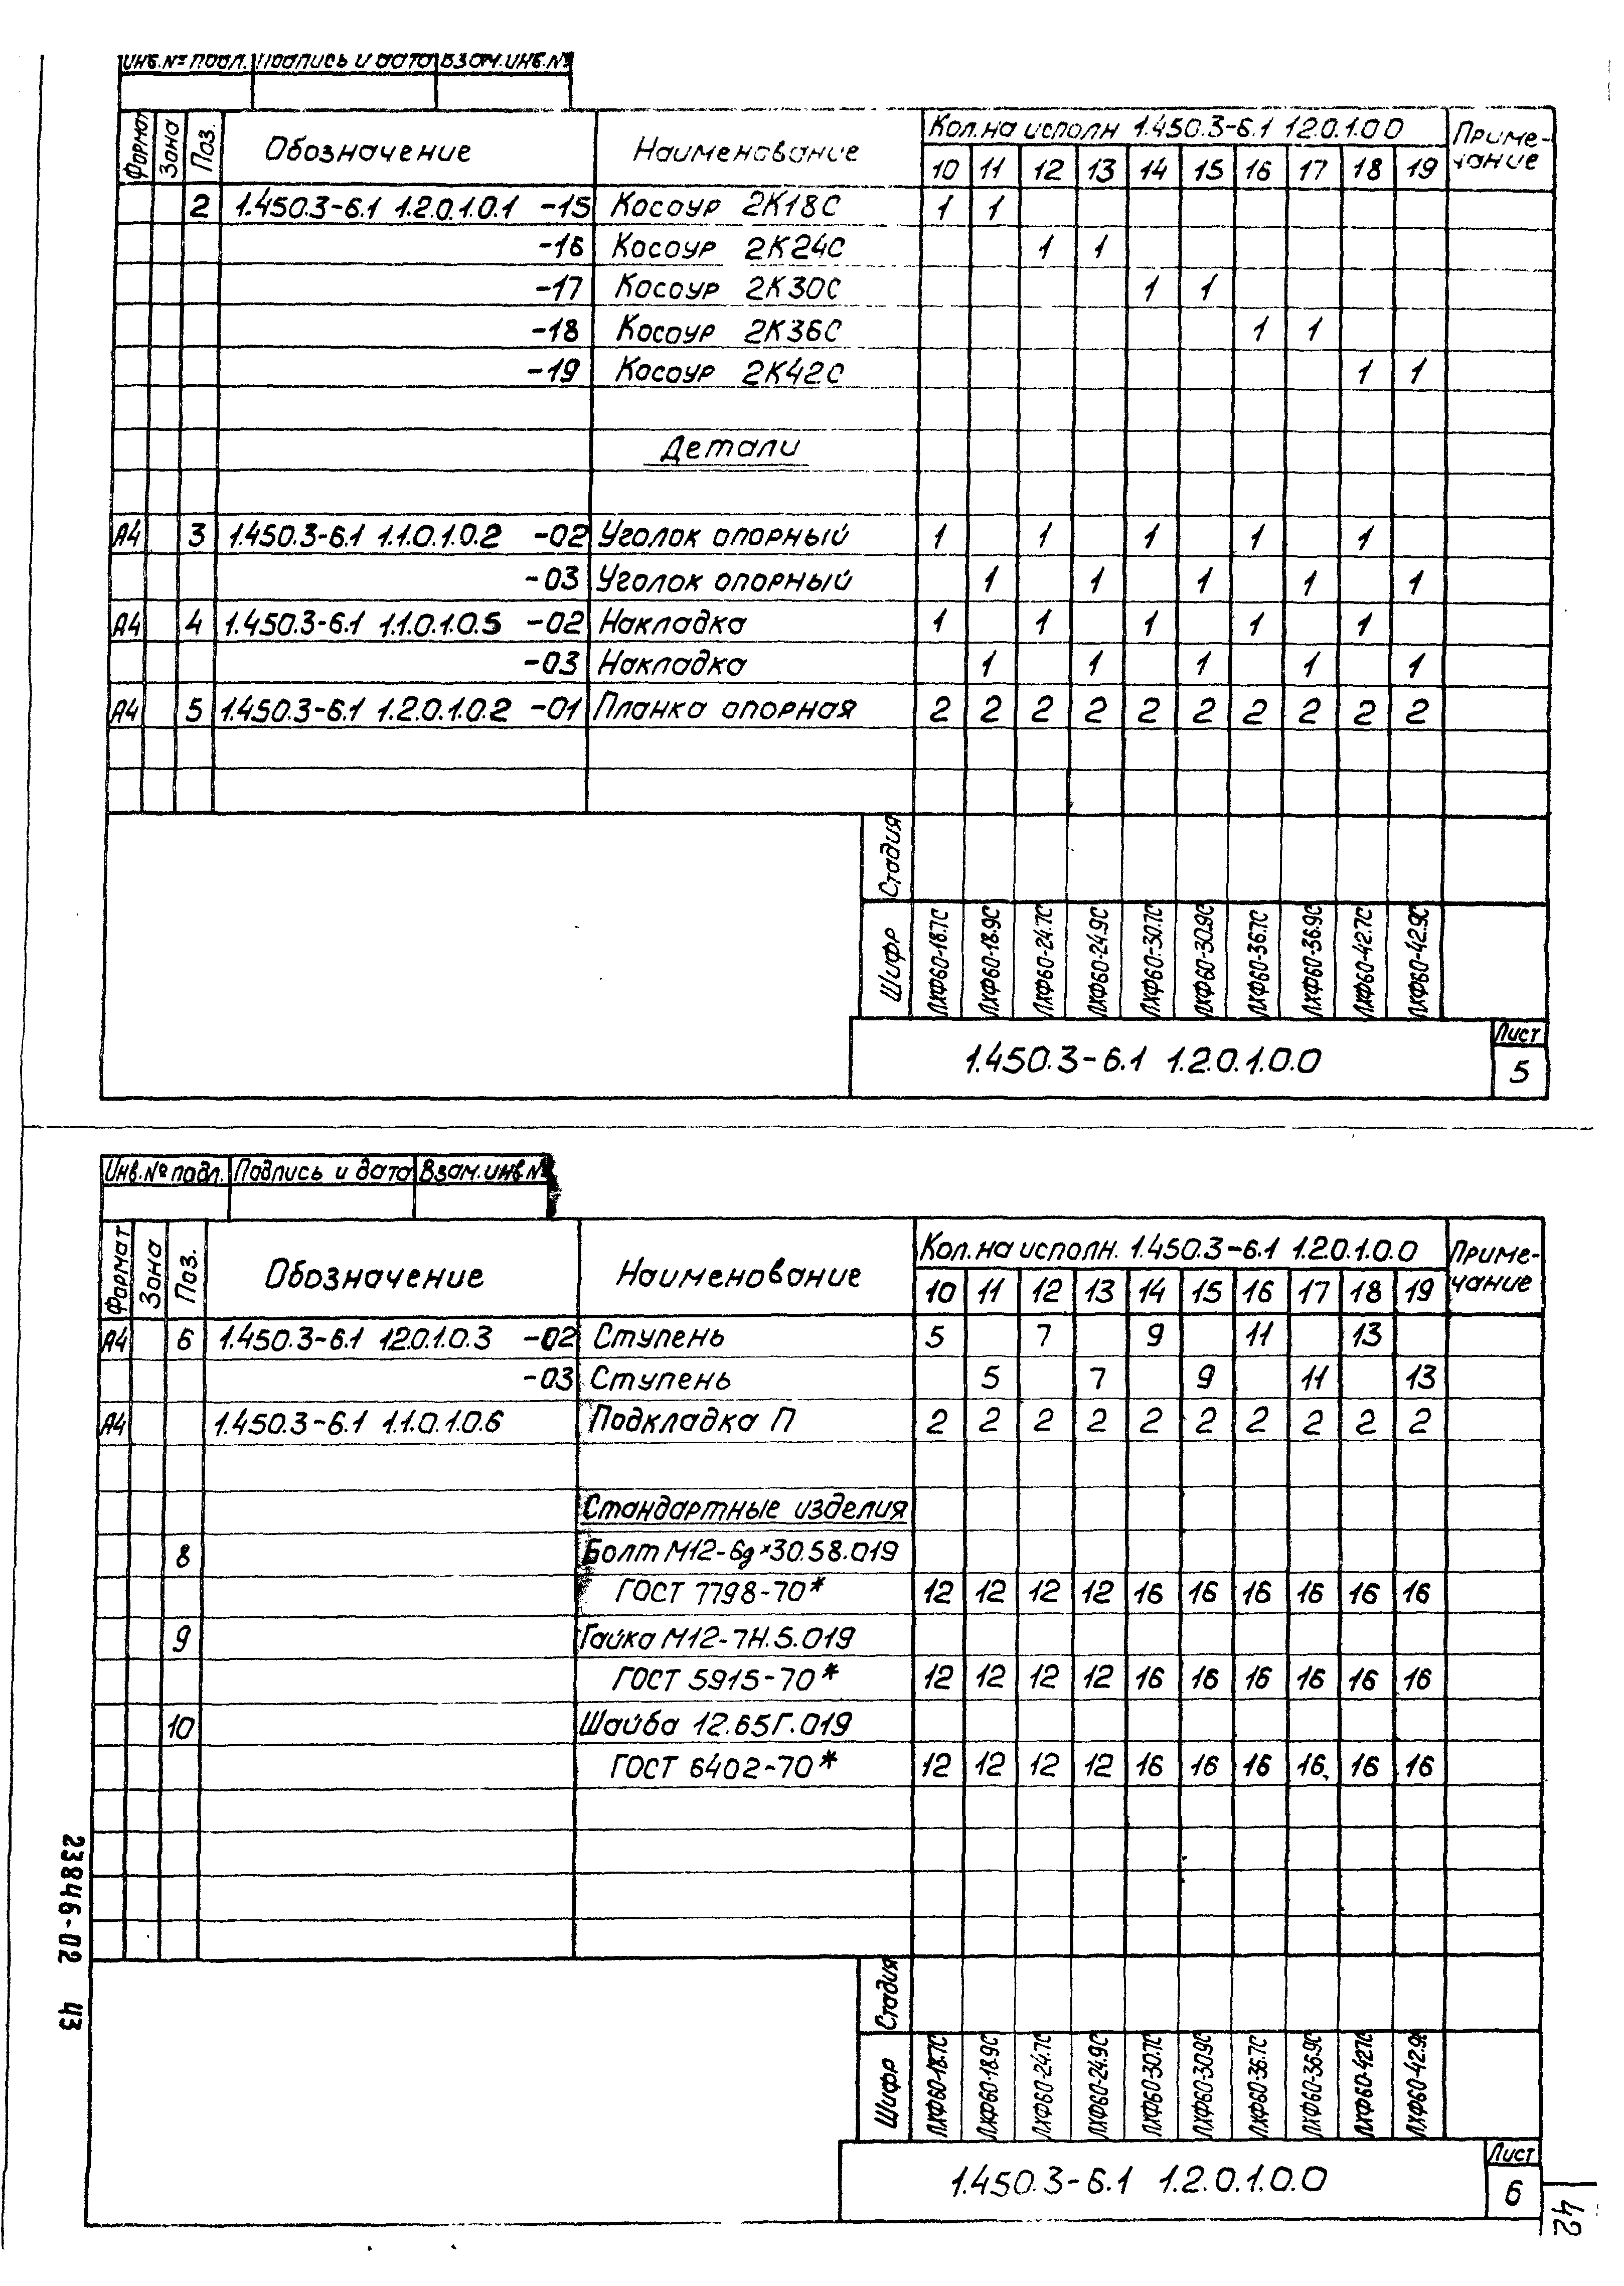 Инв.№ подл. Подпись и дата Взам.инв.№
Формат Зона Поз. Обозначение Наименование Кол.на исполн 1.450.3-6.1 1.2.0.1.0 0 Приме-
чание
10 11 12 13 14 15 16 17 18 19
2 1.450.3-6.1 1.2.0.1.0.1 -15 Косоур 2К18С 1 1
-16 Косоур 2К24С 1 1
-17 Косоур 2К30С 1 1
-18 Косоур 2К36С 1 1
-19 Косоур 2К42С 1 1
Детали
А4 3 1.450.3-6.1 1.1.0.1.0.2 -02 Уголок опорный 1 1 1 1 1
-03 Уголок опорный 1 1 1 1 1
А4 4 1.450.3-6.1 1.1.0.1.0.5 -02 Накладка 1 1 1 1 1
-03 Накладка 1 1 1 1 1
А4 5 1.450.3-6.1 1.2.0.1.0.2 -01 Планка опорная 2 2 2 2 2 2 2 2 2 2
Стадия
Шифр ЛХФ60-18.7С ЛХФ60-18.9С ЛХФ60-24.7С ЛХФ60-24.9С ЛХФ60-30.7С ЛХФ60-30.9С ЛХФ60-36.7С ЛХФ60-36.9С ЛХФ60-42.7С ЛХФ60-42.9С
1.450.3-6.1 1.2.0.1.0.0
Лист
5
Инв.№ подл. Подпись и дата Взам.инв.№
Формат Зона Поз. Обозначение Наименование Кол.на исполн. 1.450.3-6.1 1.2.0.1.0.0 Приме-
чание
10 11 12 13 14 15 16 17 18 19
А4 6 1.450.3-6.1 1.2.0.1.0.3 -02 Ступень 5 7 9 11 13
-03 Ступень 5 7 9 11 13
А4 1.450.3-6.1 1.1.0.1.0.6 Подкладка П 2 2 2 2 2 2 2 2 2 2
Стандартные изделия
8 Болт М12-6g×30.58.019
ГОСТ 7798-70* 12 12 12 12 16 16 16 16 16 16
9 Гайка М12-7Н.5.019
ГОСТ 5915-70* 12 12 12 12 16 16 16 16 16 16
10 Шайба 12.65Г.019
ГОСТ 6402-70* 12 12 12 12 16 16 16 16 16 16
Стадия
Шифр ЛХФ60-18.7С ЛХФ60-18.9С ЛХФ60-24.7С ЛХФ60-24.9С ЛХФ60-30.7С ЛХФ60-30.9С ЛХФ60-36.7С ЛХФ60-36.9С ЛХФ60-42.7С ЛХФ60-42.9С
1.450.3-6.1 1.2.0.1.0.0
Лист
6
23846-02 43
42